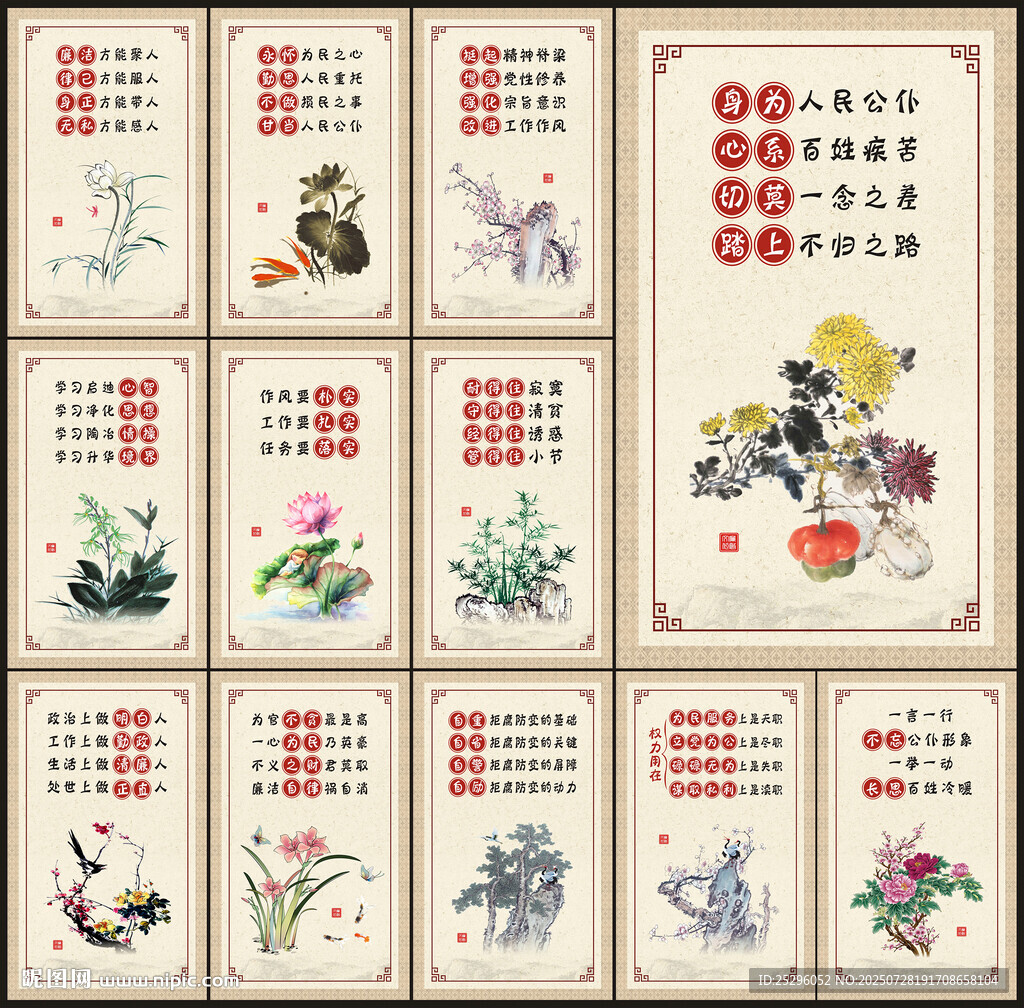 廉洁方能聚人
律己方能服人
身正方能带人
无私方能感人
永怀为民之心
勤思人民重托
不做损民之事
甘当人民公仆
挺起精神脊梁
增强党性修养
强化宗旨意识
改进工作作风
身为人民公仆
心系百姓疾苦
切莫一念之差
踏上不归之路
学习启迪心智
学习净化思想
学习陶冶情操
学习升华境界
作风要朴实
工作要扎实
任务要落实
耐得住寂寞
守得住清贫
经得住诱惑
管得住小节
政治上做明白人
工作上做勤政人
生活上做清廉人
处世上做正直人
为官不贪最是高
一心为民乃英豪
不义之财君莫取
廉洁自律祸自消
自重拒腐防变的基础
自省拒腐防变的关键
自警拒腐防变的屏障
自励拒腐防变的动力
权力用在
为民服务上是天职
立党为公上是尽职
碌碌无为上是失职
谋取私利上是渎职
一言一行
不忘公仆形象
一举一动
长思百姓冷暖
昵图网 www.nipic.com
ID:25296052 NO:20250728191708658104